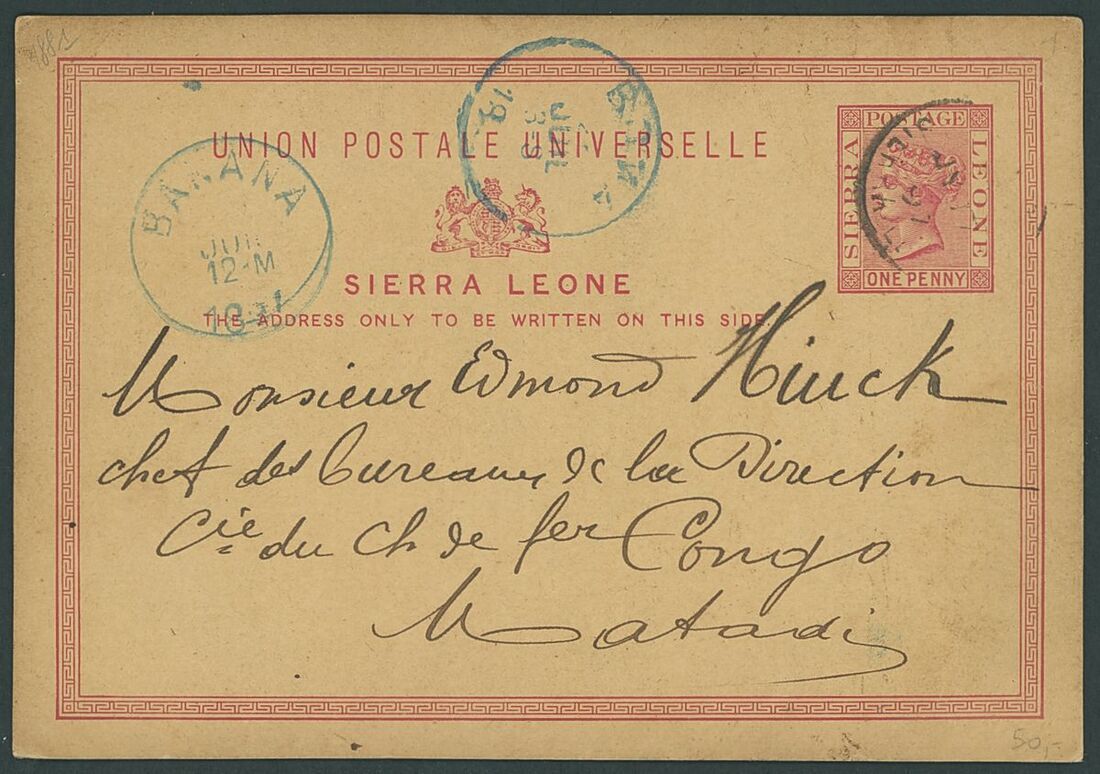 1881
UNION POSTALE UNIVERSELLE
SIERRA LEONE
THE ADDRESS ONLY TO BE WRITTEN ON THIS SIDE.
POSTAGE
SIERRA
LEONE
ONE PENNY
BANANA
JUIL
12-M
JUIL
Monsieur Edmond Hinck
chef des bureaux de la Direction
Cie du Ch de fer Congo
Matadi
50,-